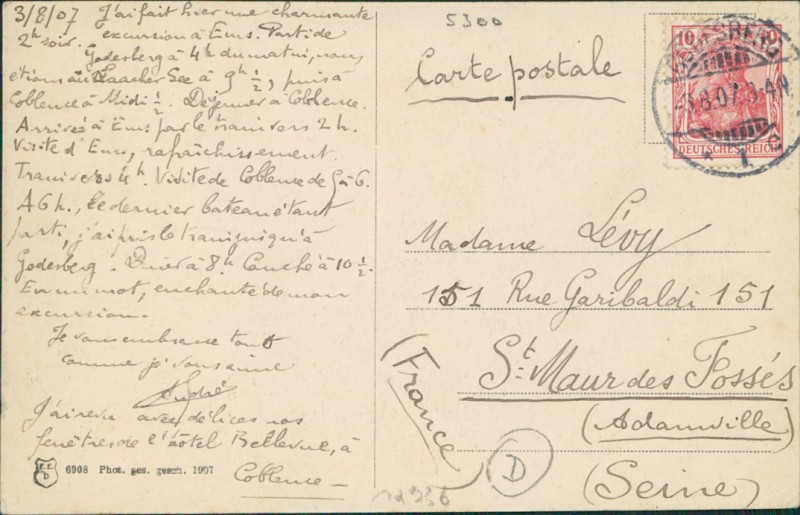 3/8/07 J'ai fait hier une charmante
2h soir. excursion à Ems. Parti de
Godesberg à 4h du matin, nous
étions au Laacher See à 9h ½, puis à
Coblence à Midi ½. Déjeuner à Coblence.
Arrivés à Ems par le train vers 2h.
Visite d'Ems, rafraîchissement.
Train vers 4h. Visite de Coblence de 5 à 6.
A 6h., le dernier bateau étant
parti, j'ai pris le train jusqu'à
Godesberg. Dîner à 8h Couché à 10 ½.
En un mot, enchanté de mon
excursion.
Je vous embrasse tout
comme je vous aime
André
J'ai revu avec délices nos
fenêtres de l'hôtel Bellevue, à
Coblence
F.E.D 6908 Phot. ges. gesch. 1907
5300
Carte postale
10
GODESBERG
-3.8.07. 3-4N
* 1
DEUTSCHES REICH
Madame Lévy
151 Rue Garibaldi 151
St. Maur des Fossés
(Adamville)
(Seine)
(France)
D